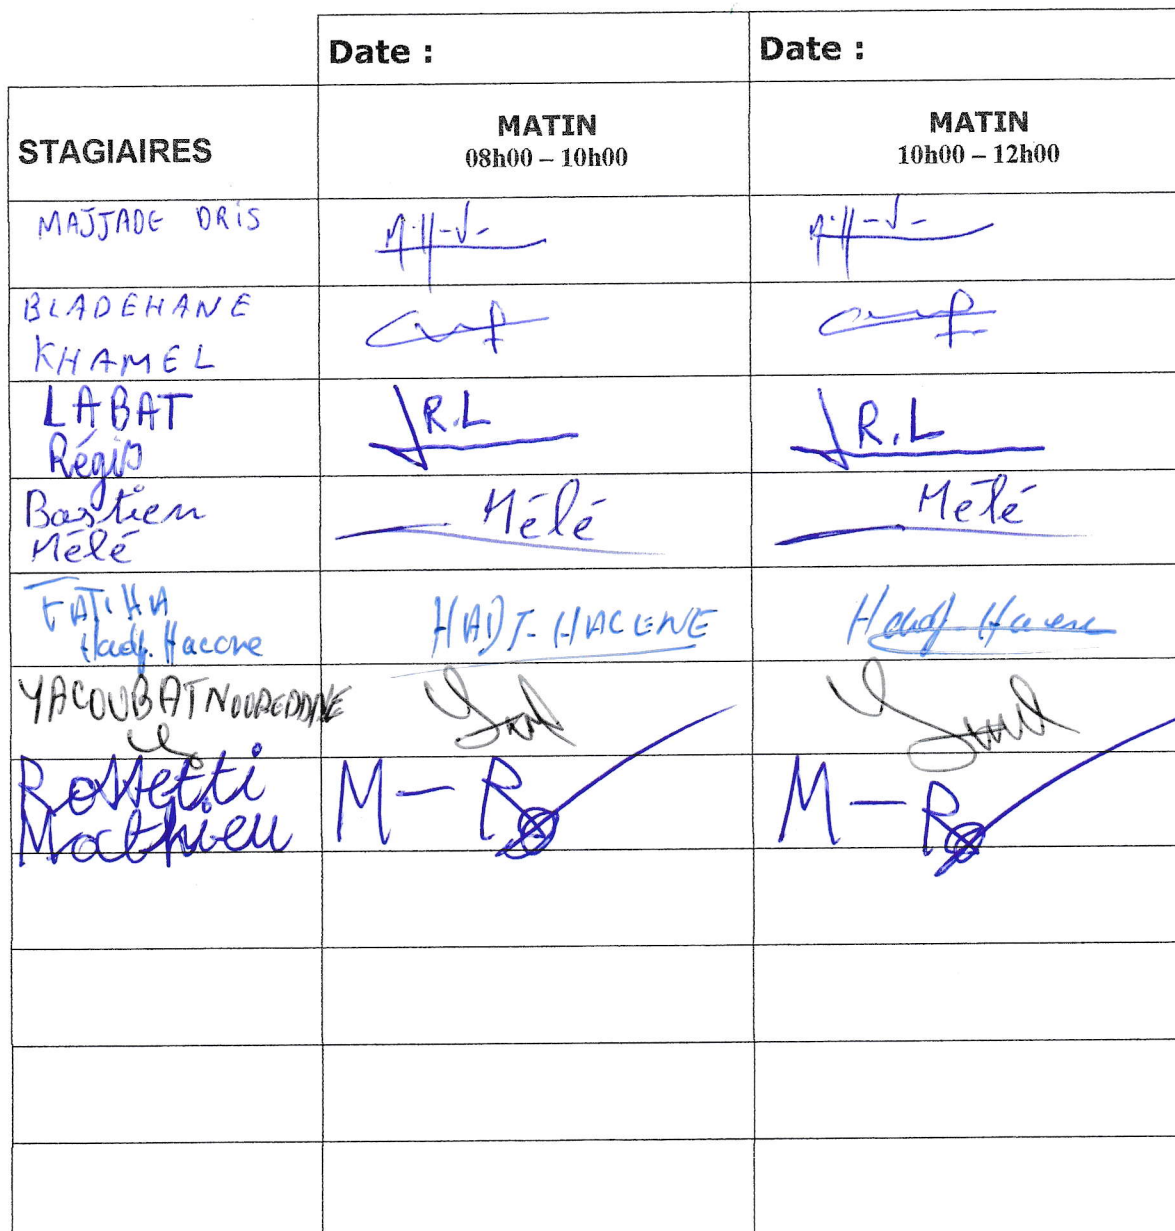 Date : Date :
STAGIAIRES MATIN MATIN
08h00 – 10h00 10h00 – 12h00
MAJJADE DRIS
BLADEHANE
KHAMEL
LABAT R.L R.L
Régis
Bastien Mélé Mélé
Mélé
FATIHA HADJ-HACENE Hadj-Hacene
Hadj-Hacene
YACOUBAT NOUREDDINE
Rossetti M-R M-R
Mathieu